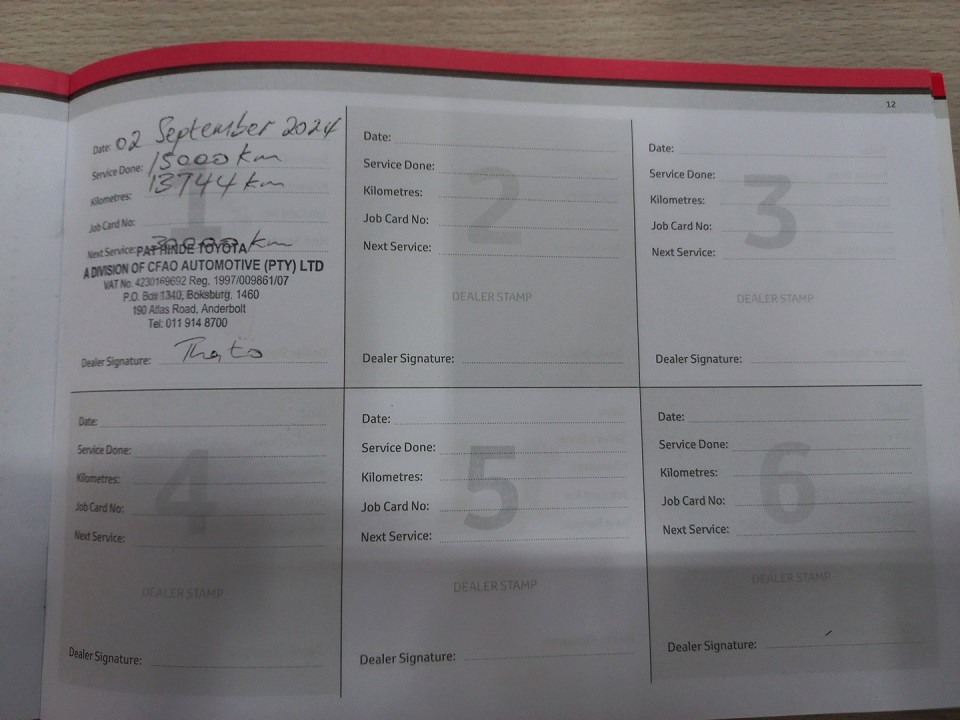 12
Date: 02 September 2024
Service Done: 15000 km
Kilometres: 13744 km
Job Card No:
Next Service: 30000 km
1
PAT HINDE TOYOTA
A DIVISION OF CFAO AUTOMOTIVE (PTY) LTD
VAT No. 4230169692 Reg. 1997/009861/07
P.O. Box 1340, Boksburg. 1460
190 Atlas Road, Anderbolt
Tel: 011 914 8700
Dealer Signature: Thato
Date:
Service Done:
Kilometres:
Job Card No:
Next Service:
2
DEALER STAMP
Dealer Signature:
Date:
Service Done:
Kilometres:
Job Card No:
Next Service:
3
DEALER STAMP
Dealer Signature:
Date:
Service Done:
Kilometres:
Job Card No:
Next Service:
4
DEALER STAMP
Dealer Signature:
Date:
Service Done:
Kilometres:
Job Card No:
Next Service:
5
DEALER STAMP
Dealer Signature:
Date:
Service Done:
Kilometres:
Job Card No:
Next Service:
6
DEALER STAMP
Dealer Signature: